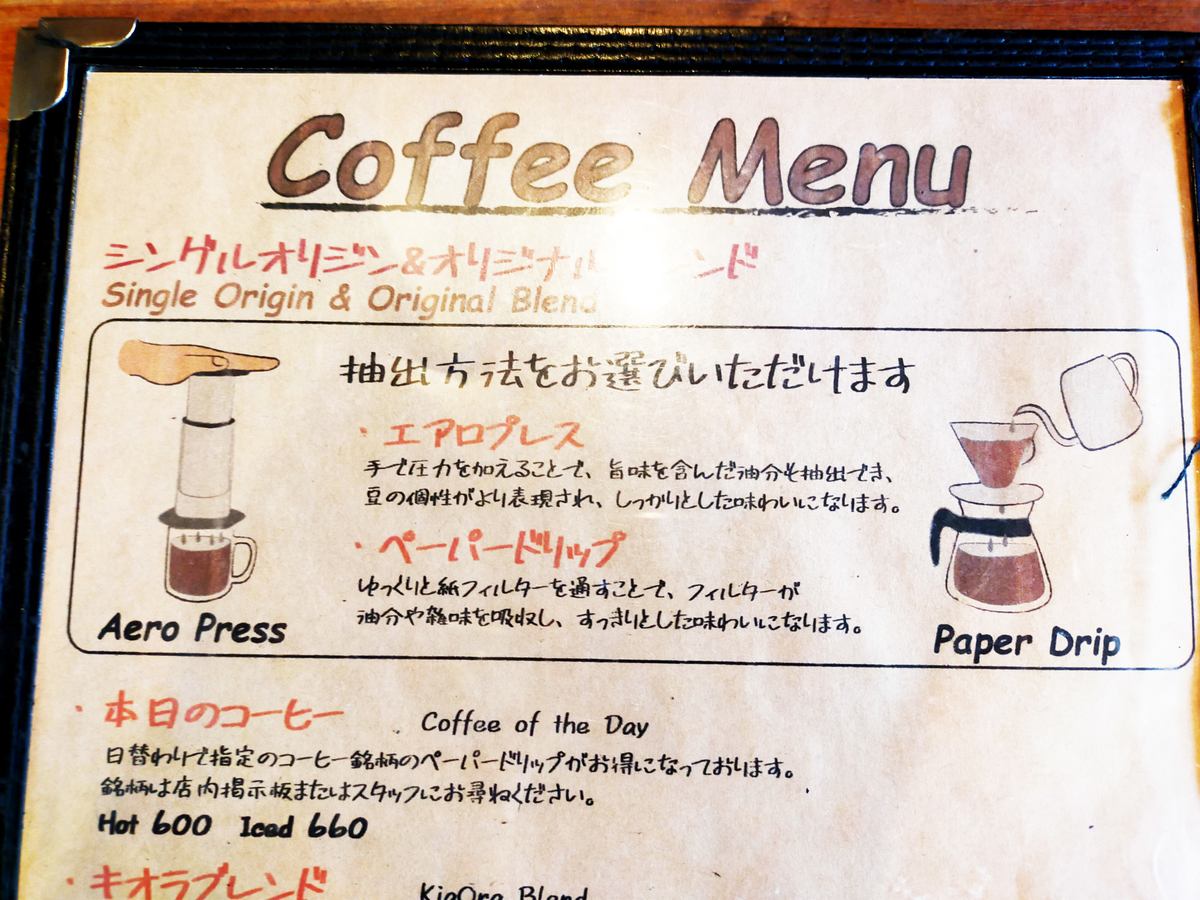 Coffee Menu
シングルオリジン&オリジナル ンド
Single Origin & Original Blend
抽出方法をお選びいただけます
・エアロプレス
手で圧力を加えることで、旨味を含んだ油分も抽出でき、
豆の個性がより表現され、しっかりとした味わいになります。
・ペーパードリップ
ゆっくりと紙フィルターを通すことで、フィルターが
油分や雑味を吸収し、すっきりとした味わいになります。
Aero Press
Paper Drip
・本日のコーヒー Coffee of the Day
日替わりで指定のコーヒー銘柄のペーパードリップがお得になっております。
銘柄は店内掲示板またはスタッフにお尋ねください。
Hot 600 Iced 660
・キオラブレンド KiaOra Blend